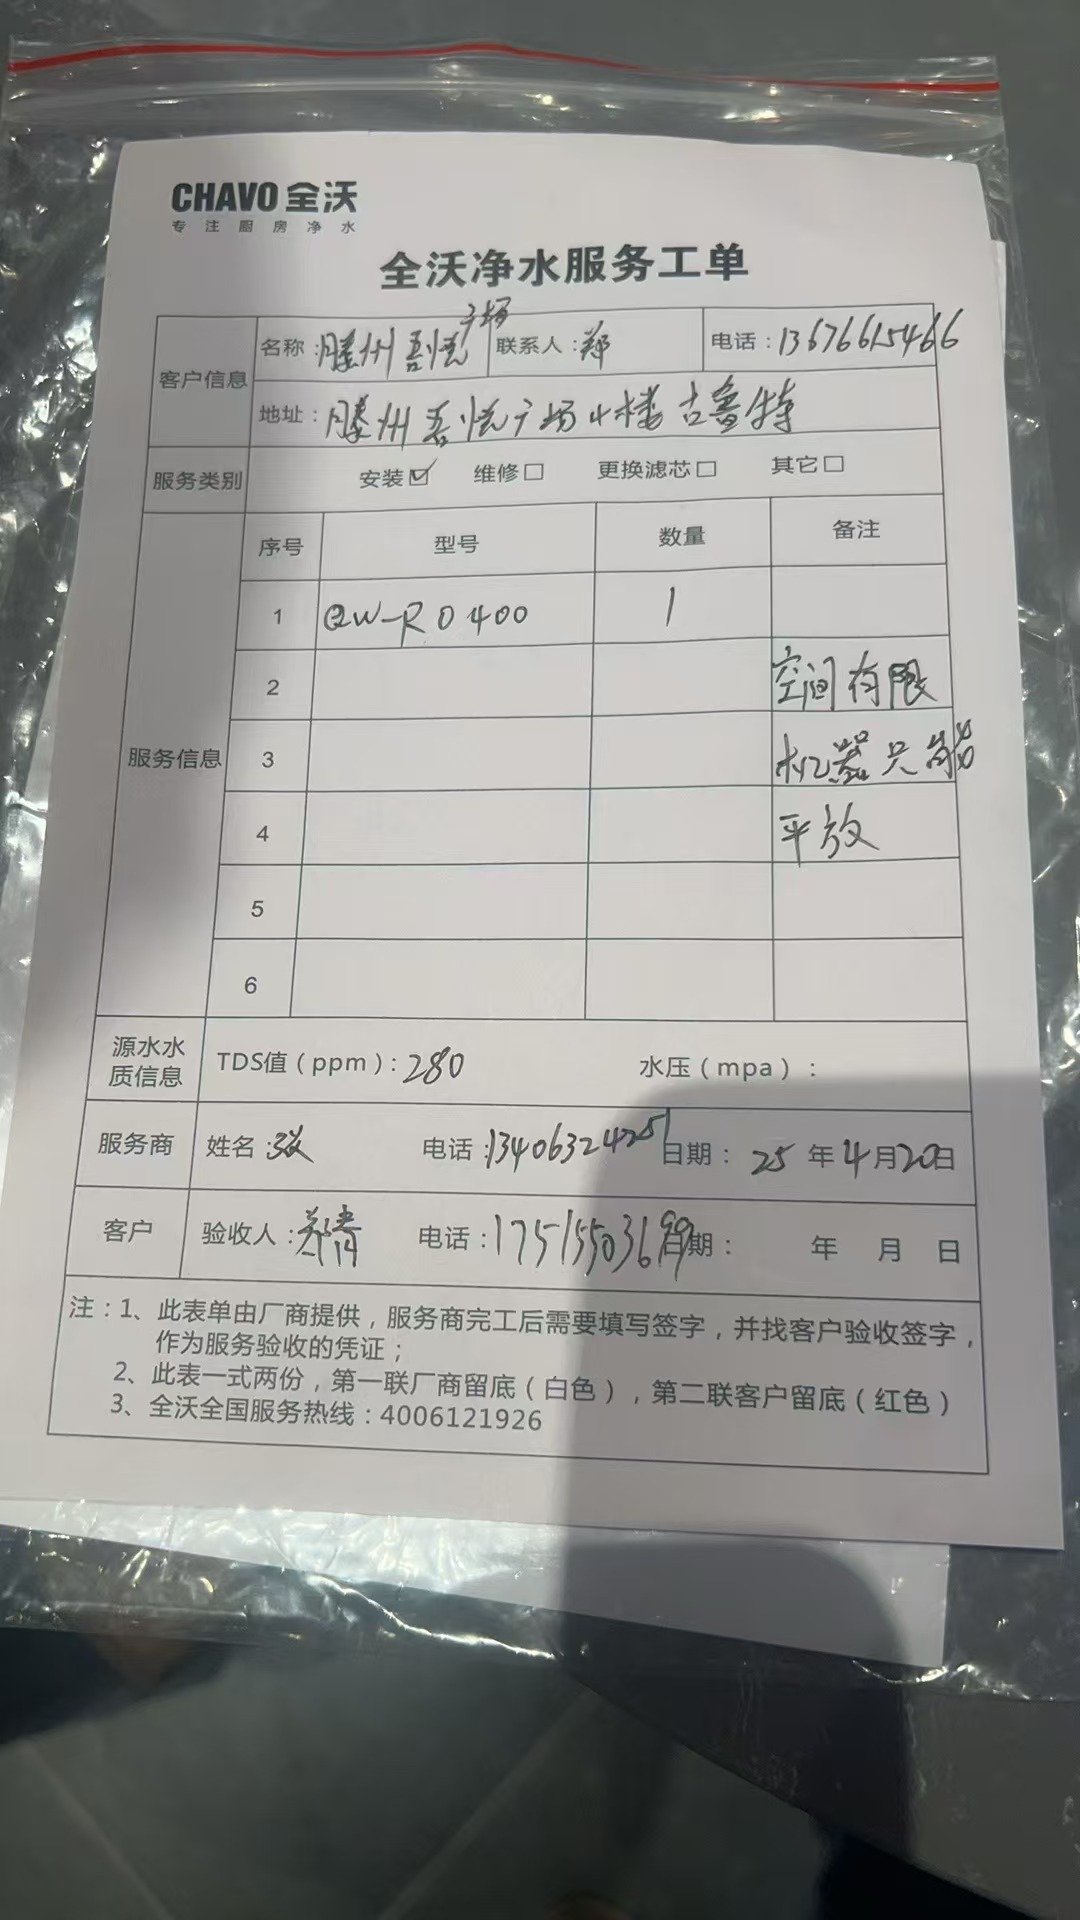 CHAVO 全沃
专注厨房净水
全沃净水服务工单
客户信息 名称：滕州吾悦广场 联系人：郑 电话：13676615466
地址：滕州吾悦广场4楼古鲁特
服务类别 安装☑ 维修□ 更换滤芯□ 其它□
服务信息 序号 型号 数量 备注
1 QW-RO400 1
2 空间有限
3 机器只能
4 平放
5
6
源水水质信息 TDS值（ppm）：280 水压（mpa）：
服务商 姓名：张 电话：13406324251 日期：25年4月20日
客户 验收人：郑青 电话：17515503699 日期： 年 月 日
注：1、此表单由厂商提供，服务商完工后需要填写签字，并找客户验收签字，
作为服务验收的凭证；
2、此表一式两份，第一联厂商留底（白色），第二联客户留底（红色）
3、全沃全国服务热线：4006121926